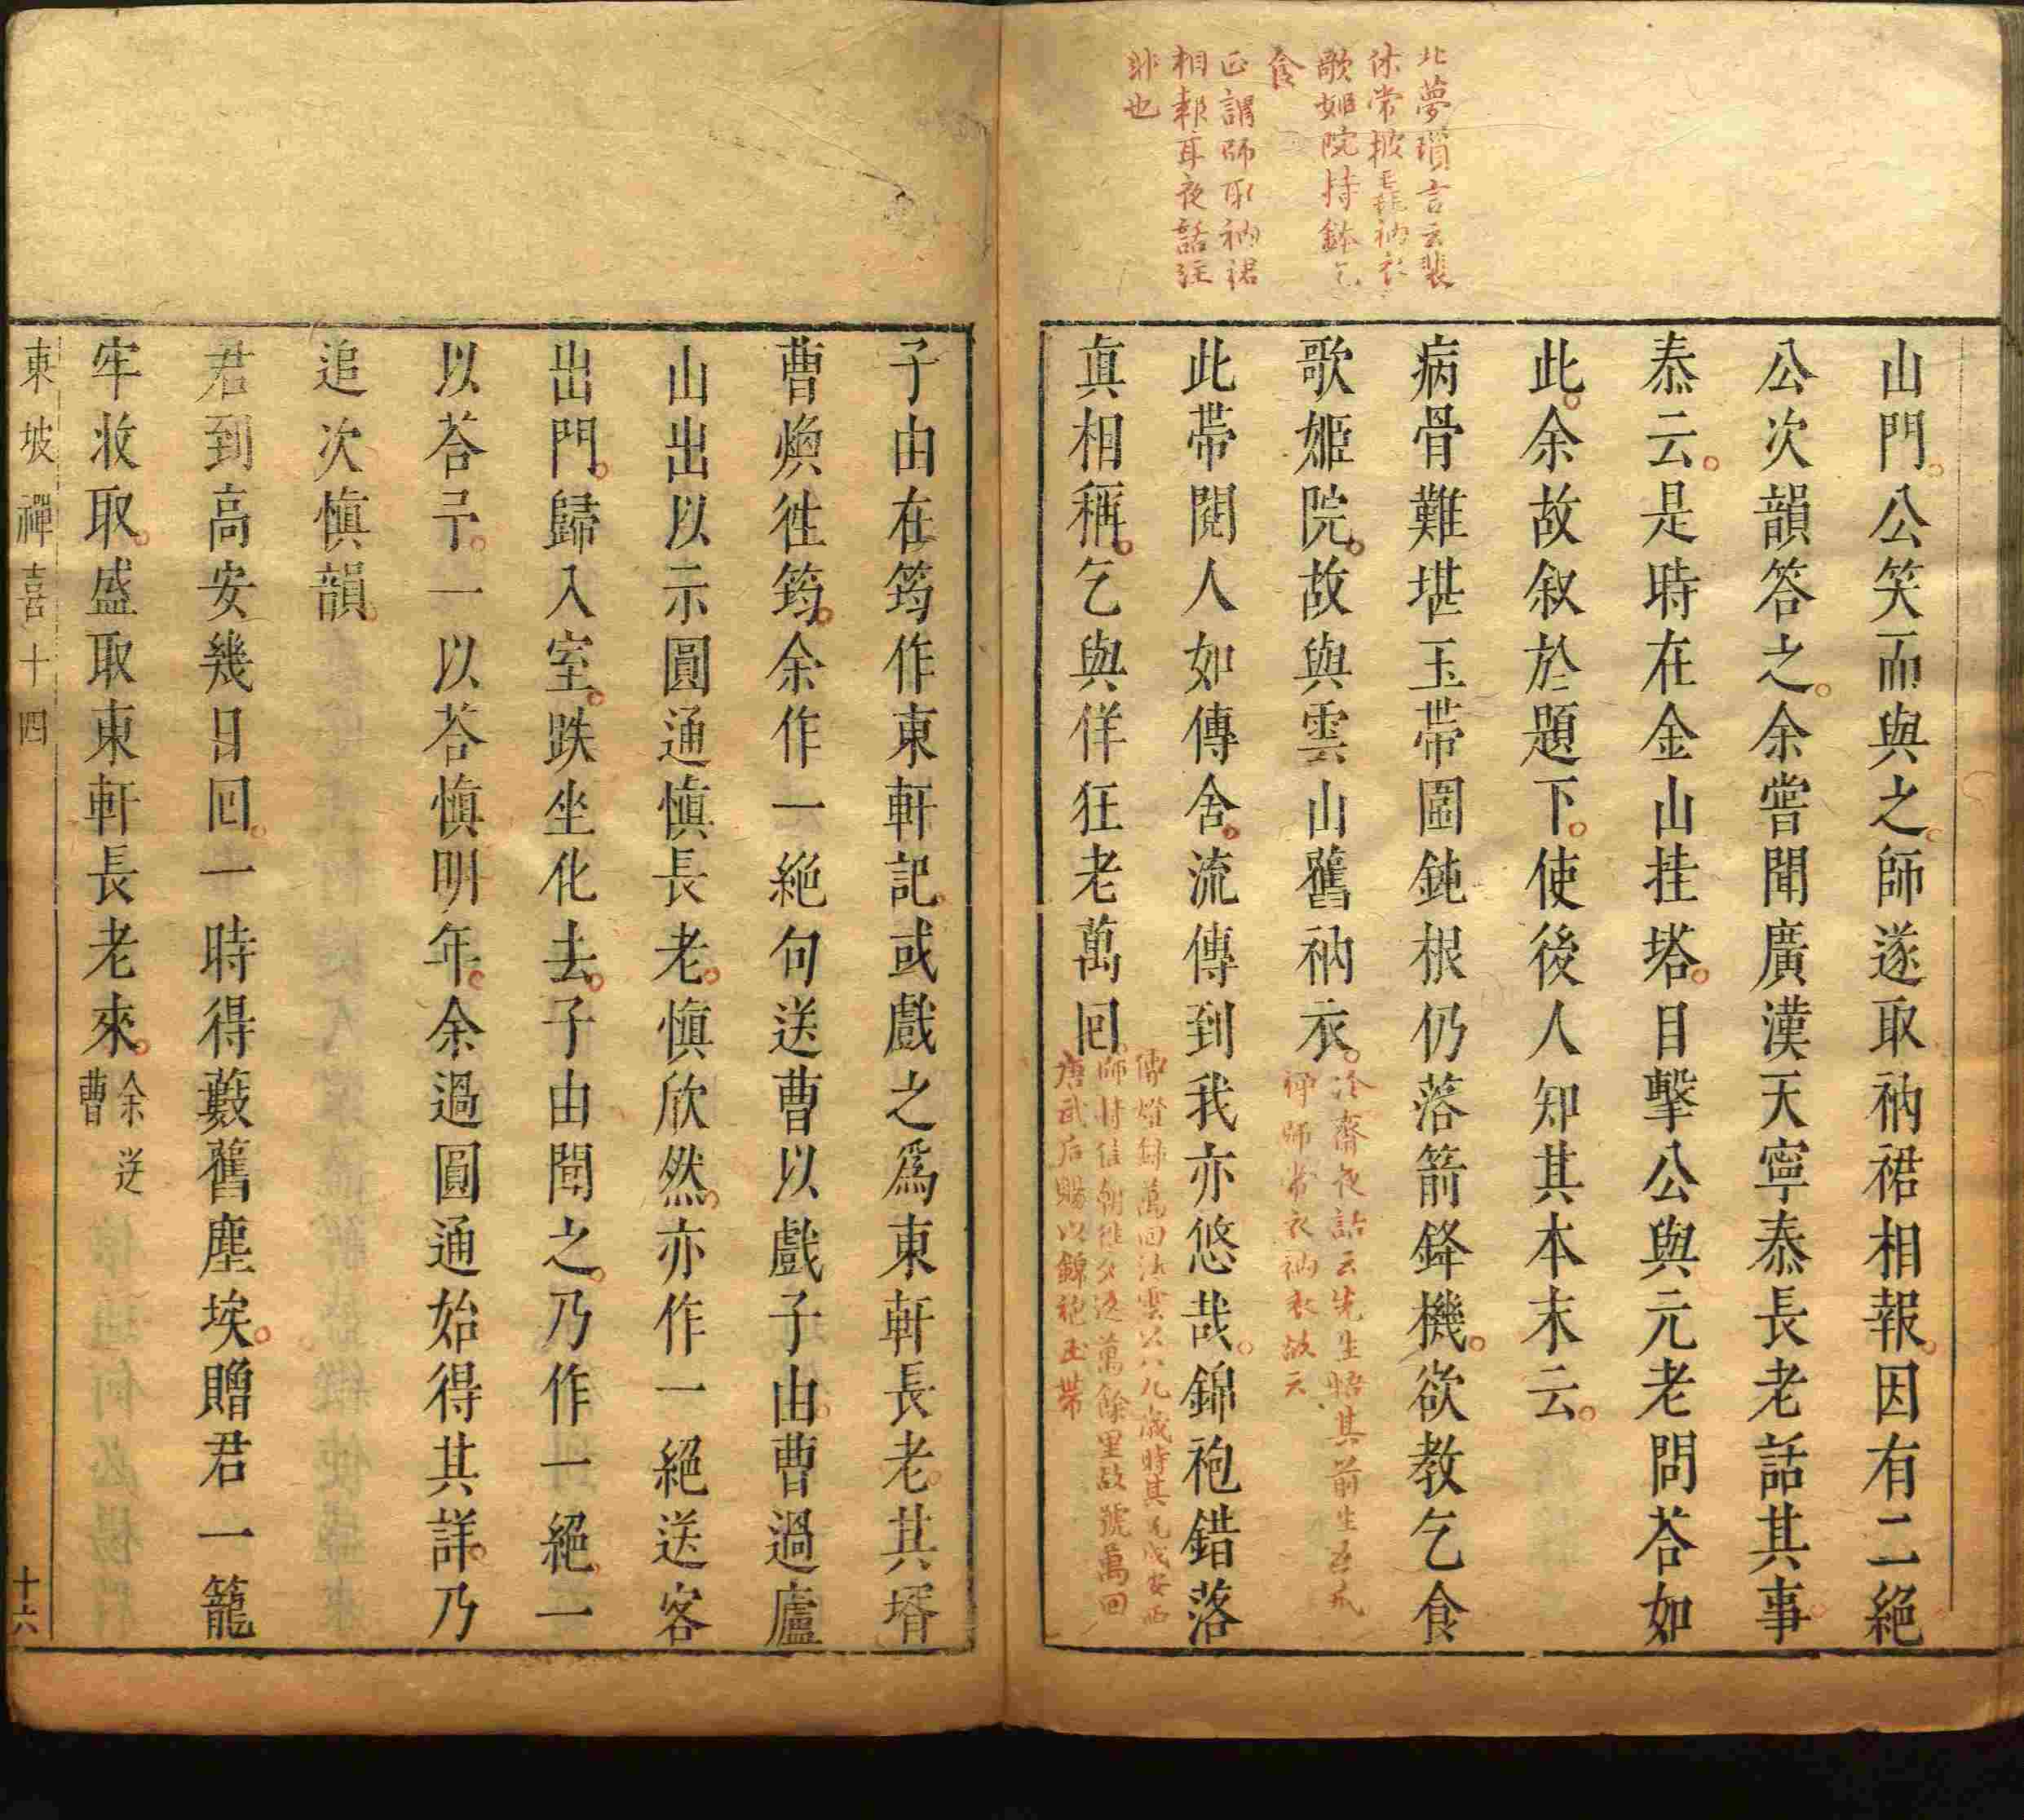 北夢瑣言云裴
休常披毳衲衣
歌姬院持鉢乞
食
正謂師取衲裙
相報耳夜話注
非也
山門公笑而與之師遂取衲裙相報因有二絕
公次韻答之余嘗聞廣漢天寧泰長老話其事
泰云是時在金山挂塔目擊公與元老問荅如
此余故叙於題下使後人知其本末云
病骨難堪玉帶圍鈍根仍落箭鋒機欲教乞食
歌姬院故與雲山舊衲衣
冷齋夜話云先生昭其前生為戒
禪師常衣衲衣故云
此帶閱人如傳舍流傳到我亦悠哉錦袍錯落
真相稱乞與佯狂老萬回
傳燈録萬回法雲公八九歲時其兄戍安西
師持信朝徃夕返萬餘里故號萬回
唐武后賜以錦袍玉帶
子由在筠作東軒記或戲之爲東軒長老其壻
曹煥徃筠余作一絕句送曹以戲子由曹過廬
山出以示圓通愼長老愼欣然亦作一絕送客
出門歸入室趺坐化去子由聞之乃作一絕一
以荅予一以荅愼明年余過圓通始得其詳乃
追次愼韻
君到高安幾日回一時得藪舊塵埃贈君一籠
牢收取盛取東軒長老來
余送
曹
東坡禪喜十四
十六